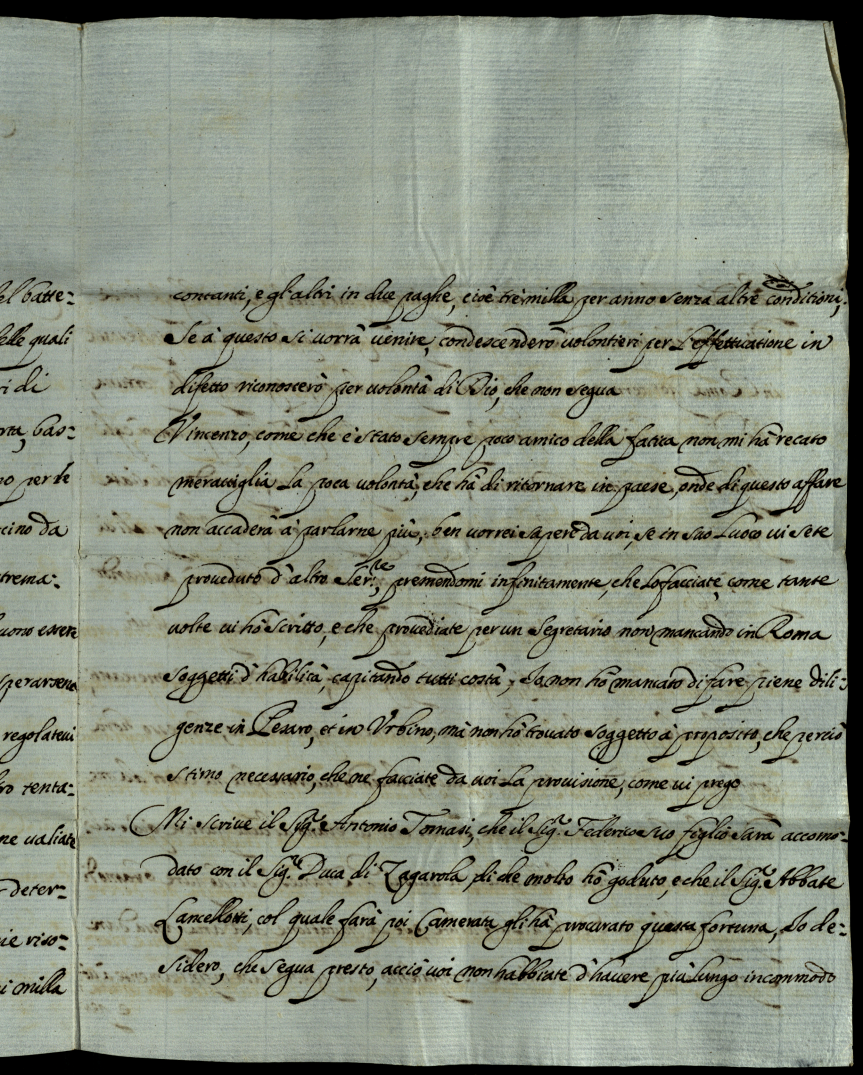 el batte-
elle quali
ri di
rta, bas-
no per le
cino da
trema-
uono essere
sperarsene
regolatevi
tro tenta-
ne valiate
deter-
ie riso-
i milla
contanti, e gl'altri in due paghe, cioè trè milla per anno senza altre conditioni,
Se à questo si vorrà venire, condescenderò volontieri per l'effettuatione in
difetto riconoscerò per volontà di Dio, che non segua
Vincenzo, come che è stato sempre poco amico della fatica non mi hà recato
meraviglia la poca volontà, che hà di ritornare in paese, onde di questo affare
non accaderà à parlarne più, ben vorrei sapere da voi, se in suo luoco vi sete
proveduto d'altro Ser.re, premendomi infinitamente, che lo facciate, come tante
volte vi hò scritto, e che provediate per un Segretario non mancando in Roma
soggetti d'habilità, capitando tutti costà, Io non hò mancato di fare piene dili-
genze in Pesaro, et in Urbino, mà non hò trovato soggetto à proposito, che perciò
stimo necessario, che ne facciate da voi la provisione, come vi prego
Mi scrive il Sig.r Antonio Tomasi, che il Sig.r Federico suo figlio sarà accomo-
dato con il Sig.r Duca di Zagarola, di che molto hò goduto, e che il Sig.r Abbate
Lancellotti, col quale farà poi Camerata gli hà procurato questa fortuna, Io de-
sidero, che segua presto, acciò voi non habbiate d'havere più lungo incommodo